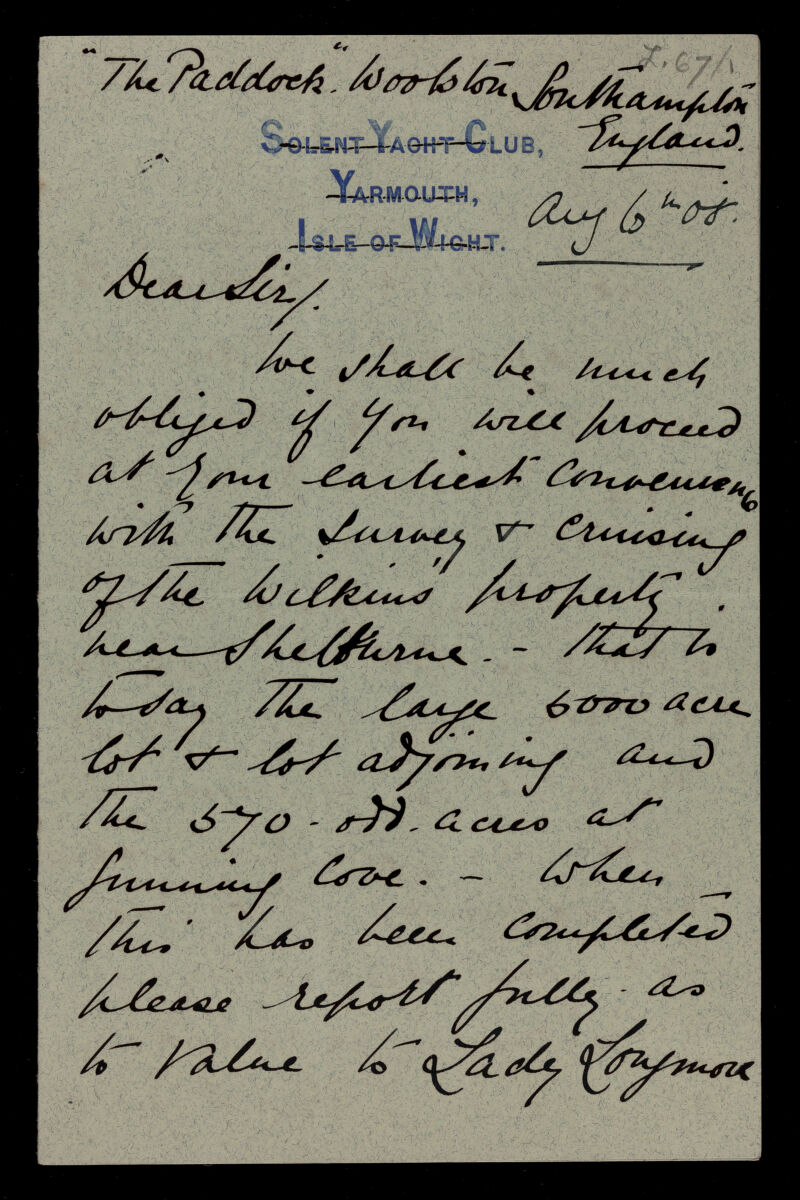 Z.67/1
"The Paddock". Woolston, Southampton
England.
SOLENT YACHT CLUB,
YARMOUTH,
ISLE OF WIGHT.
Aug 6th 08.
Dear Sir/.
We shall be much
obliged if you will proceed
at your earliest convenience
with the survey & cruising
of the Wilkins' property
near Shelburne. - that is
to say the large 5000 acre
lot & lot adjoining and
the 570 - odd. acres at
Gunning Cove. - When
this has been completed
please report fully as
to value to Lady Longmore